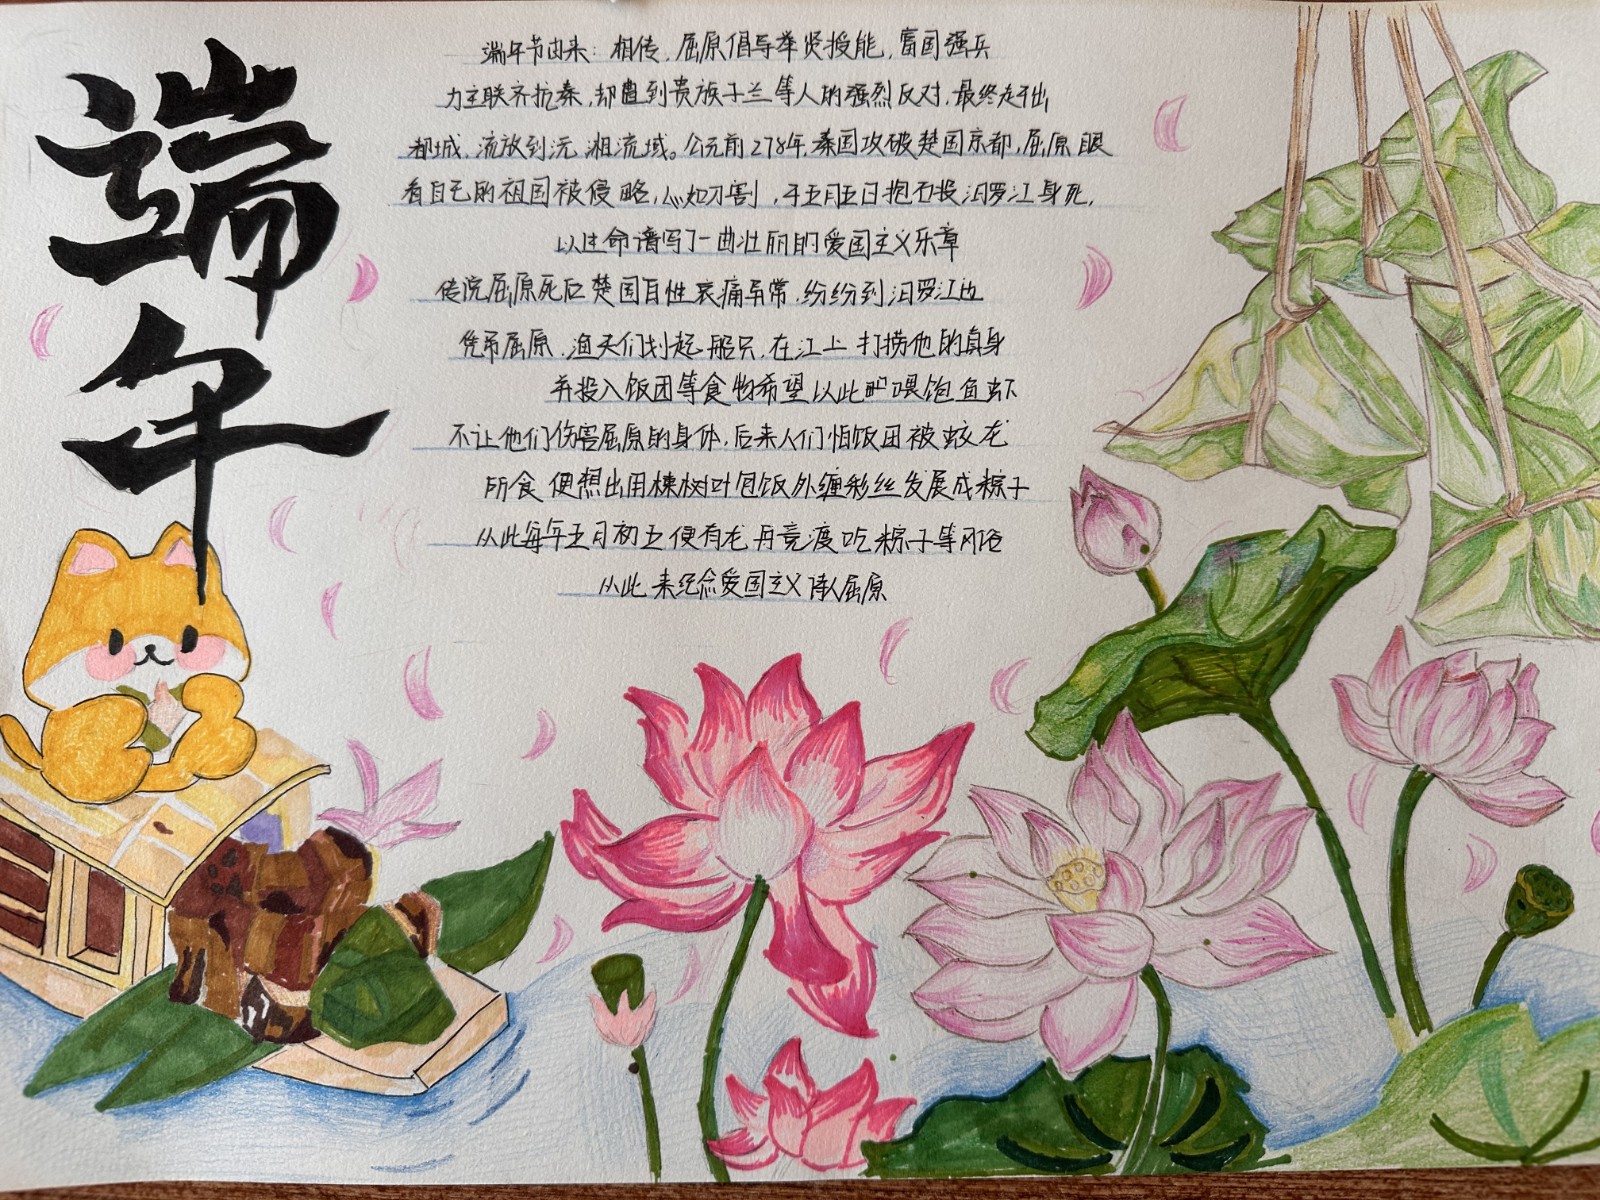 端午
端午节由来：相传，屈原倡导举贤授能，富国强兵
力主联齐抗秦，却遭到贵族子兰等人的强烈反对，最终赶出
都城，流放到沅 湘流域。公元前278年，秦国攻破楚国京都，屈原眼
看自己的祖国被侵略，心如刀割，于五月五日抱石投汨罗江身死，
以生命谱写了一曲壮丽的爱国主义乐章
传说屈原死后楚国百姓哀痛异常，纷纷到汨罗江边
凭吊屈原，渔夫们划起船只，在江上打捞他的真身
并投入饭团等食物希望以此 喂饱鱼虾
不让他们伤害屈原的身体，后来人们怕饭团被蛟龙
所食 便想出用楝树叶包饭外缠彩丝发展成粽子
从此每年五月初五便有龙舟竞渡吃粽子等风俗
从此 来纪念爱国主义诗人屈原